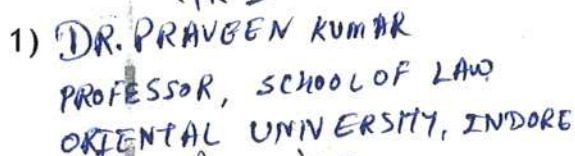 1) DR. PRAVEEN KUMAR
PROFESSOR, SCHOOL OF LAW
ORIENTAL UNIVERSITY, INDORE